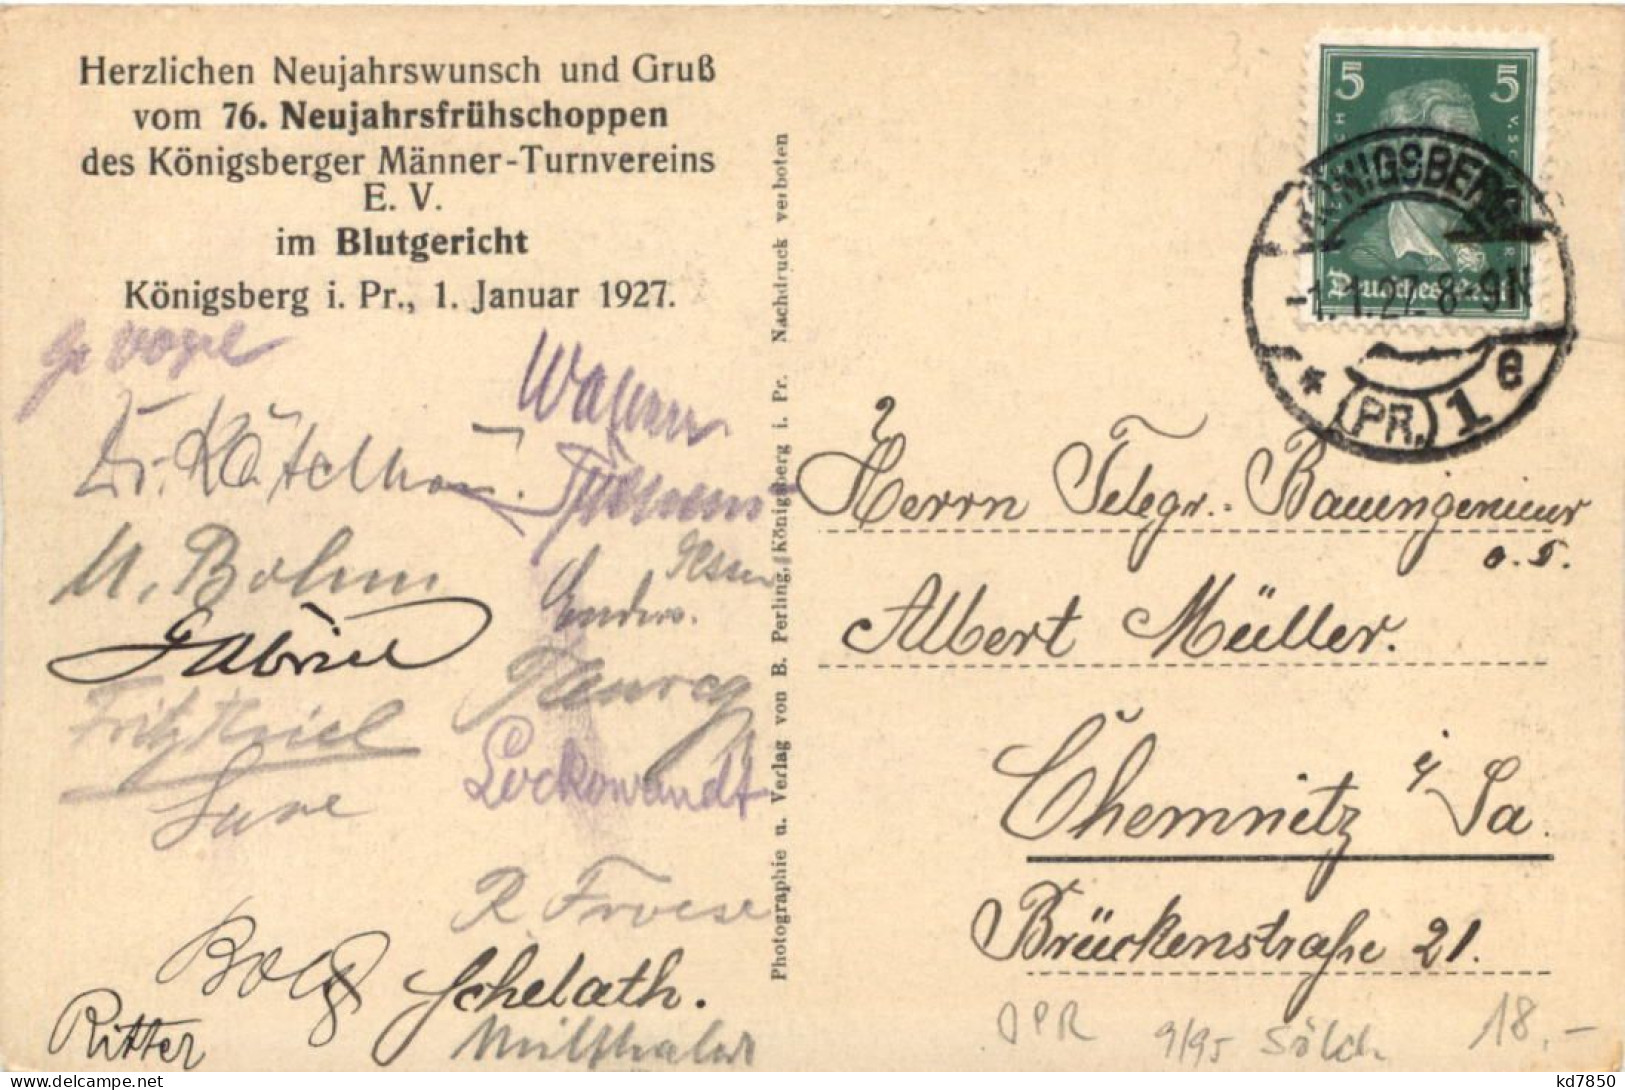 Herzlichen Neujahrswunsch und Gruß
vom 76. Neujahrsfrühschoppen
des Königsberger Männer-Turnvereins
E. V.
im Blutgericht
Königsberg i. Pr., 1. Januar 1927.
Vogel
Wagner
Dr. Kötelhon
U. Bohm
Enders.
Gabriel
Fritz Thiel
Lockowandt
R. Froese
Schelath.
Ritter
Photographie u. Verlag von B. Perling, Königsberg i. Pr. Nachdruck verboten
5 5
Deutsches Reich
KÖNIGSBERG
-1.1.27. 8-9N
* (PR.) 1 e
Herrn Telegr.-Bauingenieur
a. D.
Albert Müller.
Chemnitz i/Sa.
Brückenstraße 21.
OPR
9/95
18.-
kd7850